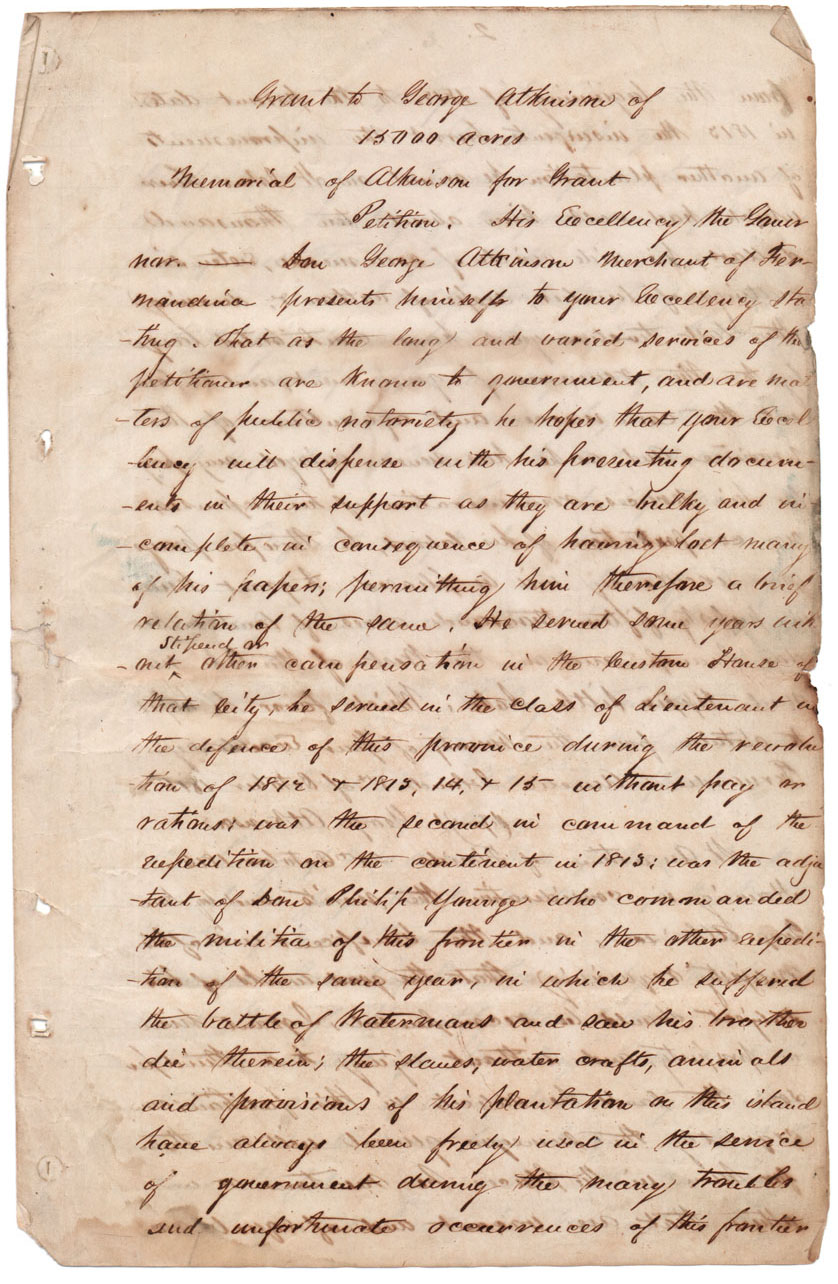 Grant to George Atkinson of
15000 acres
Memorial of Atkinson for Grant
Petition. His Excellency the Gover
nor. — Don George Atkinson Merchant of Fer-
nandina presents himself to your Excellency sta
-ting. That as the long and varied services of the
petitioner are known to government, and are mat
-ters of public notoriety he hopes that your Excel
-lency will dispense with his presenting docum-
-ents in their support as they are bulky and in
-complete in consequence of having lost many
of his papers; permitting him therefore a brief
relation of the same. He served some years with
stipend or
-out ^ other compensation in the Custom House of
that City, he served in the class of Lieutenant in
the defence of this province during the revolu
tion of 1812 & 1813, 14, & 15 without pay or
rations: was the second in command of the
expedition on the continent in 1813: was the adju
-tant of Don Philip Younge who commanded
the militia of this frontier in the other expedi-
-tion of the same year, in which he suffered
the battle of Watermans and saw his brother
die therein; the slaves, water crafts, animals
and provisions of his plantation on this island
have always been freely used in the service
of government during the many troubles
and unfortunate occurrences of this frontier
1